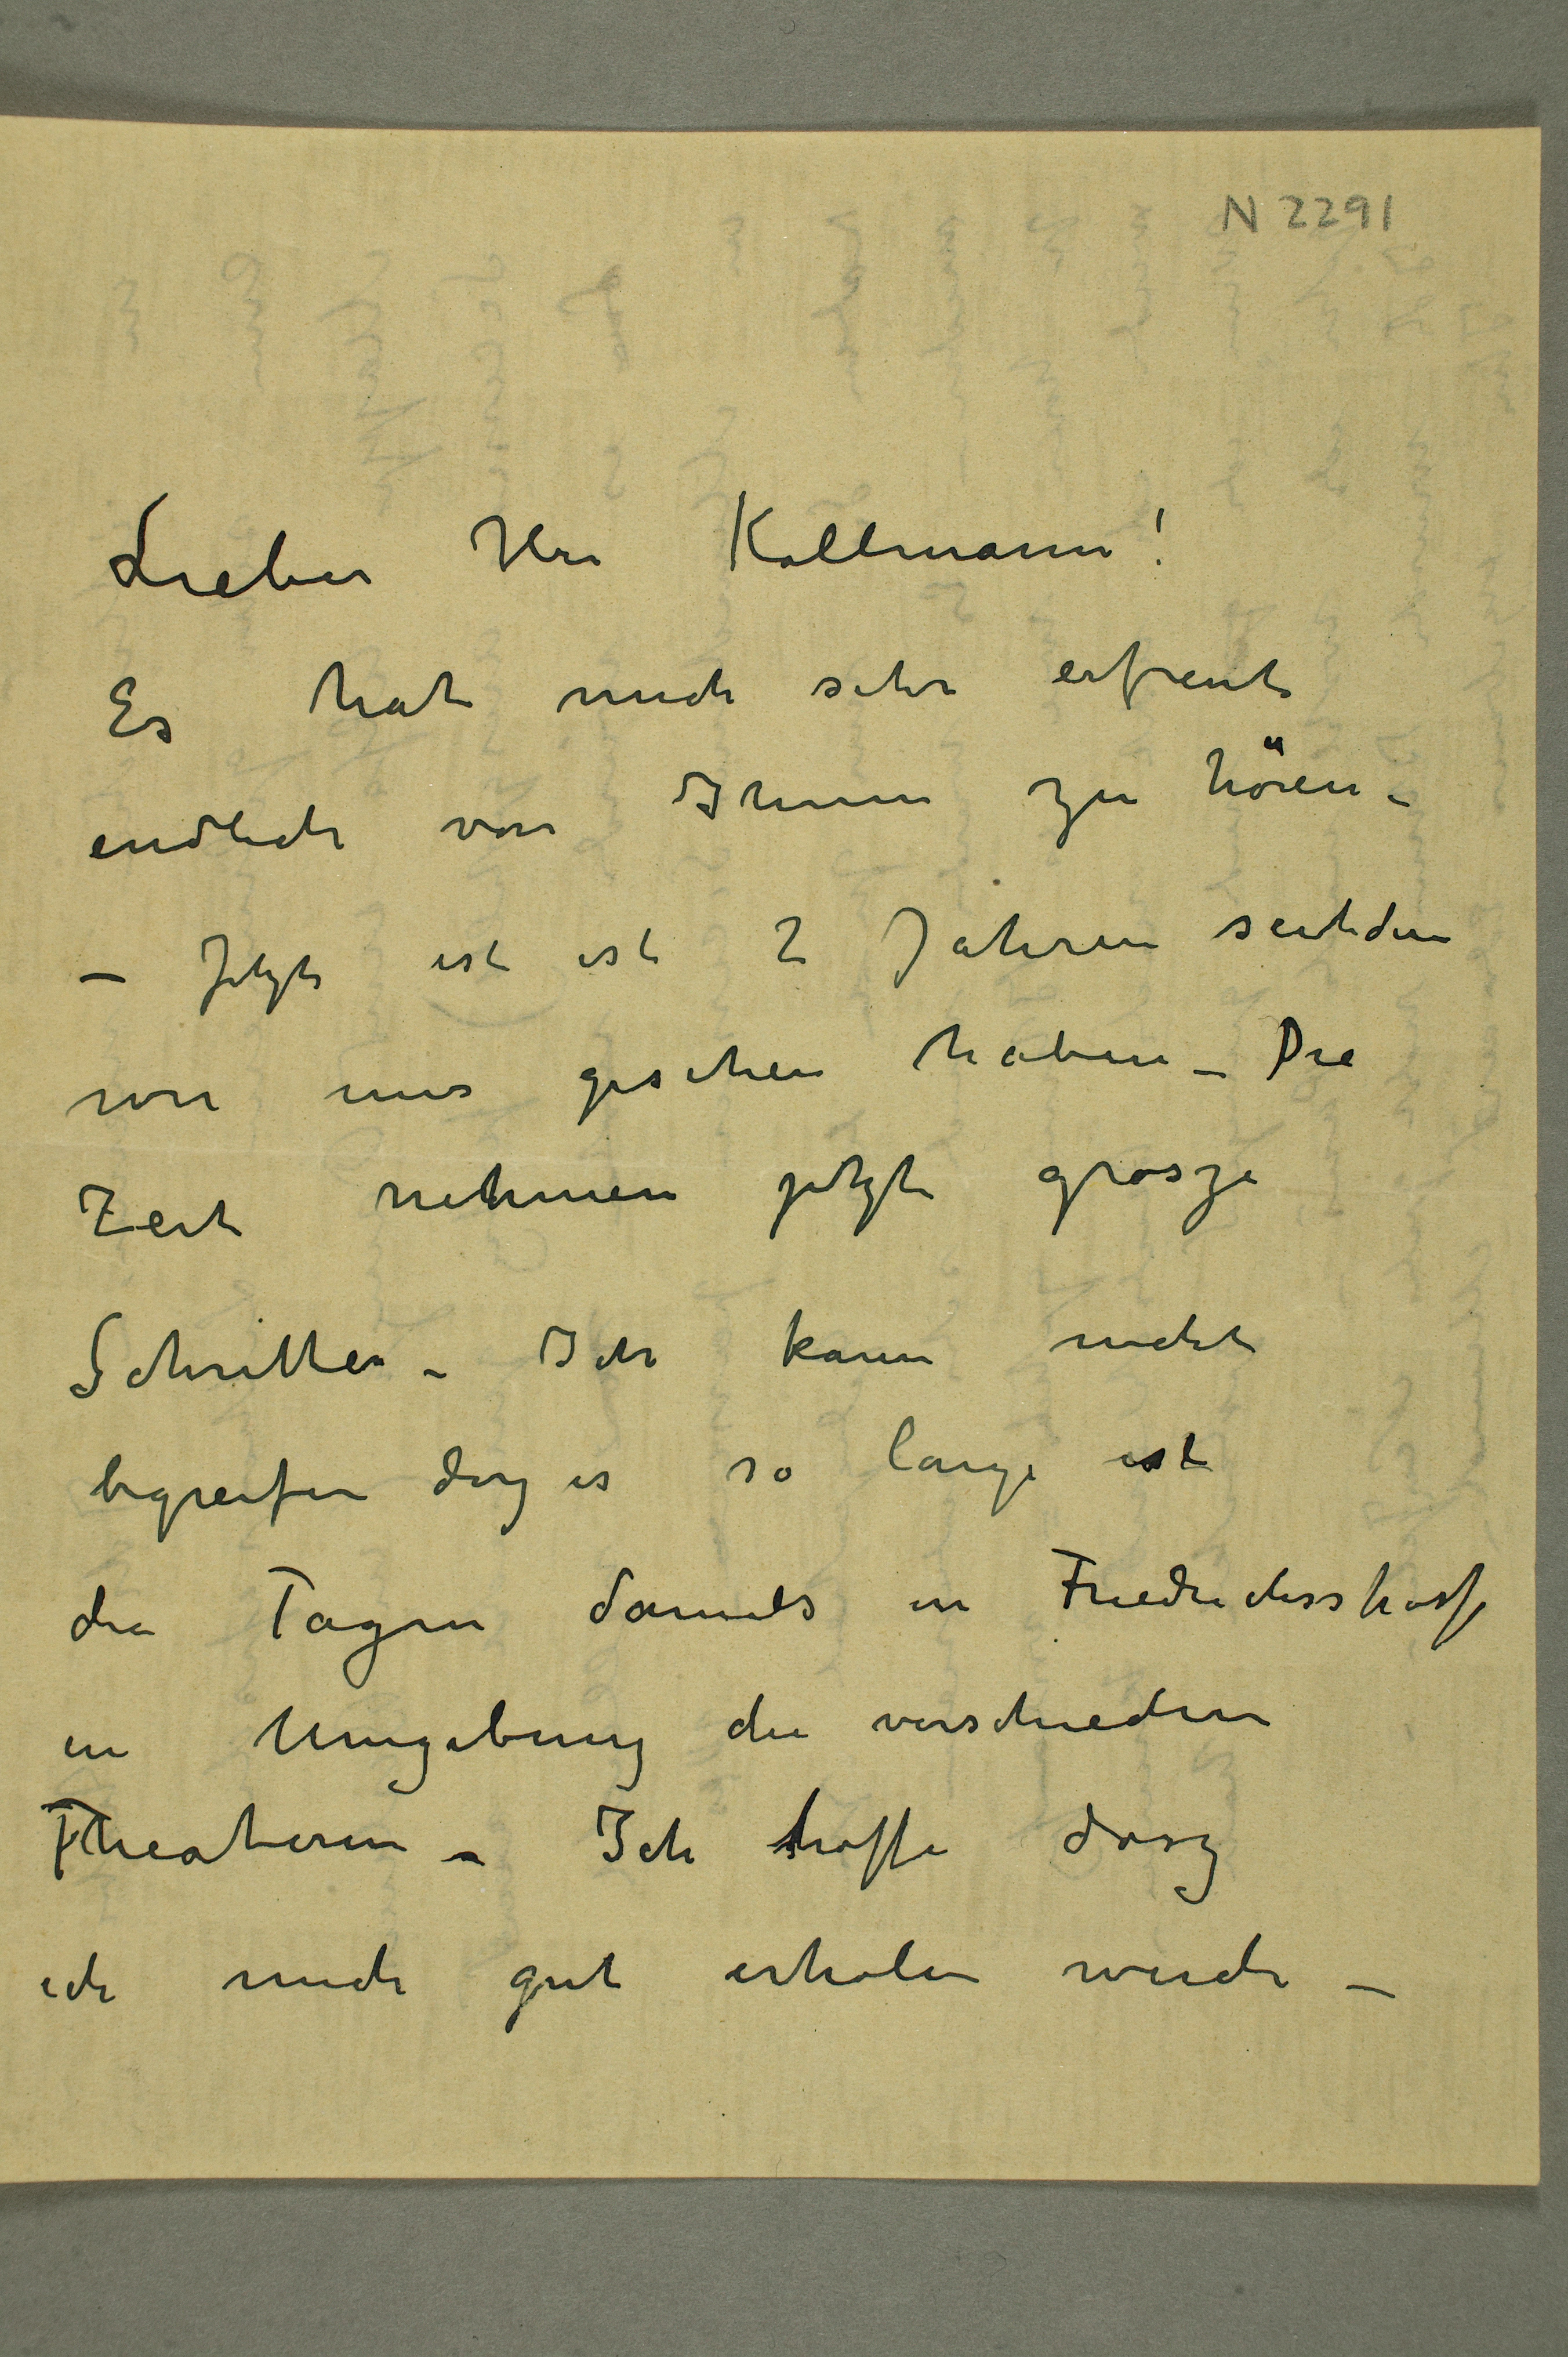 N 2291
Lieber Herr Kollmann!
Es hat mich sehr erfreut
endlich von Ihnen zu hören –
– Jetzt ist est 2 Jahren seitdem
wir uns gesehen haben – Die
Zeit nehmen jetzt grosze
Schritte – Ich kann nicht
begreifen dasz es so lange ist
die Tagen damals in Friedrichsshoff
in Umgebung die verschieden
Theateren – Ich hoffe dasz
ich mich gut erholen werde –